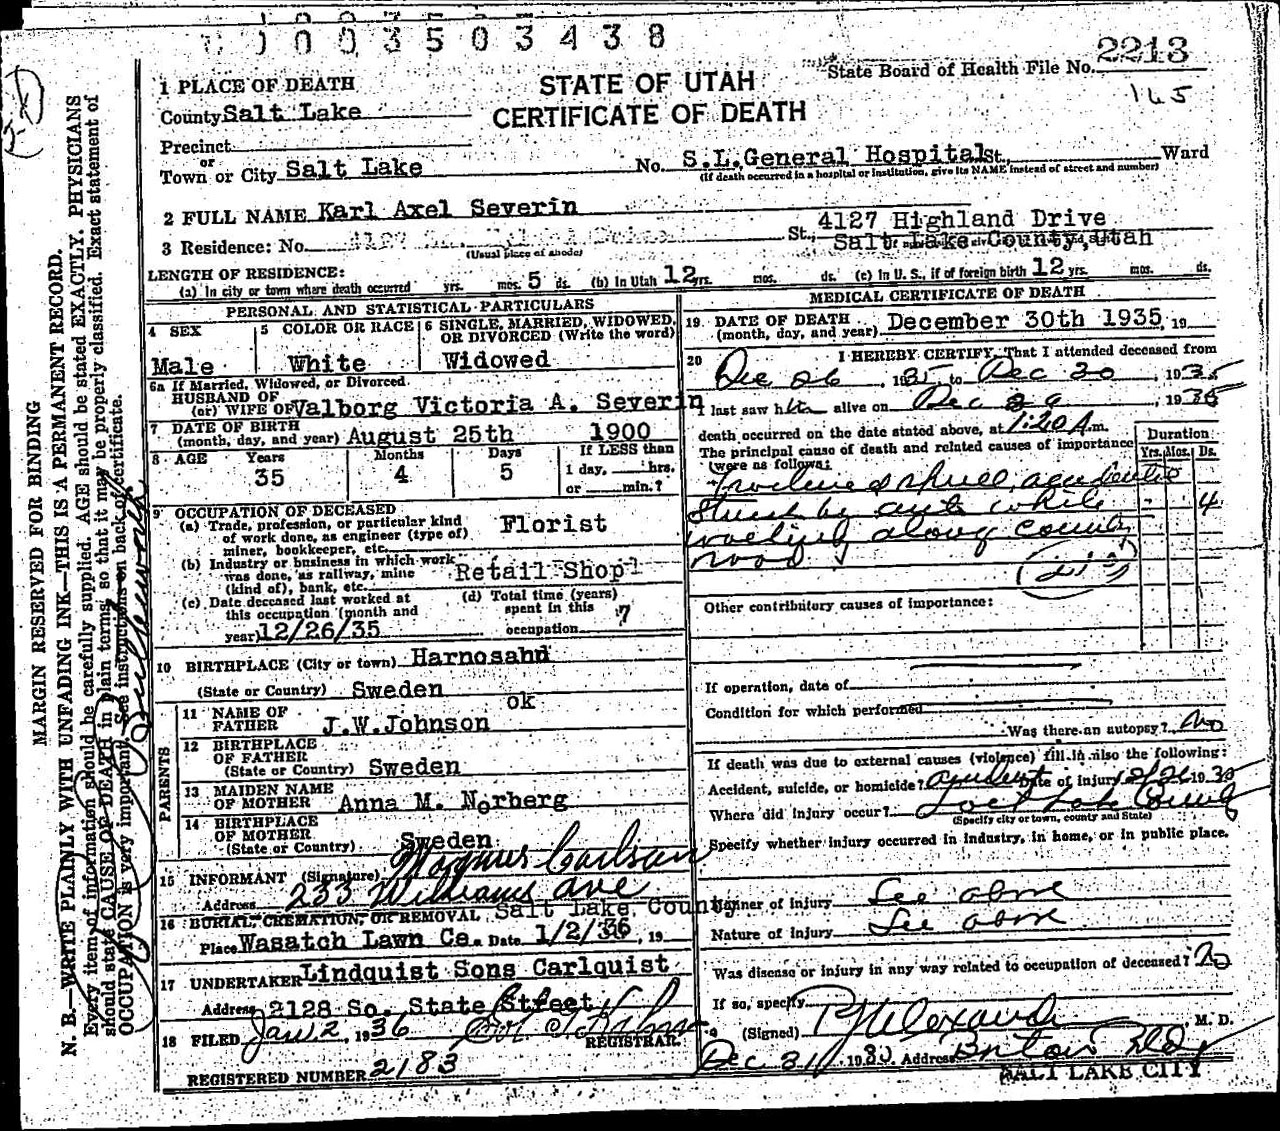 1 0 0 3 5 0 3 4 3 8
STATE OF UTAH
CERTIFICATE OF DEATH
State Board of Health File No. 2213
145
1 PLACE OF DEATH
County Salt Lake
Precinct
or
Town or City Salt Lake No. S.L. General Hospital St., Ward
(If death occurred in a hospital or institution, give its NAME instead of street and number)
2 FULL NAME Karl Axel Severin
3 Residence: No. St., 4127 Highland Drive
Salt Lake County, Utah
(Usual place of abode)
LENGTH OF RESIDENCE:
(a) In city or town where death occurred yrs. mos. 5 ds. (b) In Utah 12 yrs. mos. ds. (c) In U. S., if of foreign birth 12 yrs. mos. ds.
PERSONAL AND STATISTICAL PARTICULARS
4 SEX
Male
5 COLOR OR RACE
White
6 SINGLE, MARRIED, WIDOWED, OR DIVORCED (Write the word)
Widowed
6a If Married, Widowed, or Divorced.
HUSBAND OF
(or) WIFE OF Valborg Victoria A. Severin
7 DATE OF BIRTH
(month, day, and year) August 25th 1900
8 AGE Years Months Days If LESS than
35 4 5 1 day, hrs.
or min.?
9 OCCUPATION OF DECEASED
(a) Trade, profession, or particular kind
of work done, as engineer (type of)
miner, bookkeeper, etc. Florist
(b) Industry or business in which work
was done, as railway, mine
(kind of), bank, etc. Retail Shop
(c) Date deceased last worked at
this occupation (month and
year) 12/26/35
(d) Total time (years)
spent in this
occupation 7
10 BIRTHPLACE (City or town) Harnosahd
(State or Country) Sweden
ok
PARENTS
11 NAME OF
FATHER J.W.Johnson
12 BIRTHPLACE
OF FATHER
(State or Country) Sweden
13 MAIDEN NAME
OF MOTHER Anna M. Norberg
14 BIRTHPLACE
OF MOTHER
(State or Country) Sweden
15 INFORMANT (Signature) Magnus Carlson
Address 233 Williams Ave
16 BURIAL, CREMATION, OR REMOVAL Salt Lake County
Place Wasatch Lawn Ce. Date 1/2/36, 19
17 UNDERTAKER Lindquist Sons Carlquist
Address 2128 So. State Street
18 FILED Jan 2, 1936
REGISTRAR.
REGISTERED NUMBER 2183
MEDICAL CERTIFICATE OF DEATH
19 DATE OF DEATH
(month, day, and year) December 30th 1935, 19
20 I HEREBY CERTIFY, That I attended deceased from
Dec 26, 1935 to Dec 30, 1935
I last saw him alive on Dec 29, 1935
death occurred on the date stated above, at 1:20 A.m.
The principal cause of death and related causes of importance
were as follows:
Duration
Yrs. Mos. Ds.
Fracture of skull, accidental
Struck by auto while 4
walking along county
road
Other contributory causes of importance:
If operation, date of
Condition for which performed
Was there an autopsy? No
If death was due to external causes (violence) fill in also the following:
Accident, suicide, or homicide? Accident Date of injury 12/26 1935
Where did injury occur? Salt Lake County
(Specify city or town, county and State)
Specify whether injury occurred in industry, in home, or in public place.
Manner of injury See above
Nature of injury See above
Was disease or injury in any way related to occupation of deceased? No
If so, specify
(Signed) M. D.
Dec 31, 1935 Address
SALT LAKE CITY
MARGIN RESERVED FOR BINDING
N. B.—WRITE PLAINLY WITH UNFADING INK—THIS IS A PERMANENT RECORD.
Every item of information should be carefully supplied. AGE should be stated EXACTLY. PHYSICIANS
should state CAUSE OF DEATH in plain terms, so that it may be properly classified. Exact statement of
OCCUPATION is very important. See instructions on back of certificate.